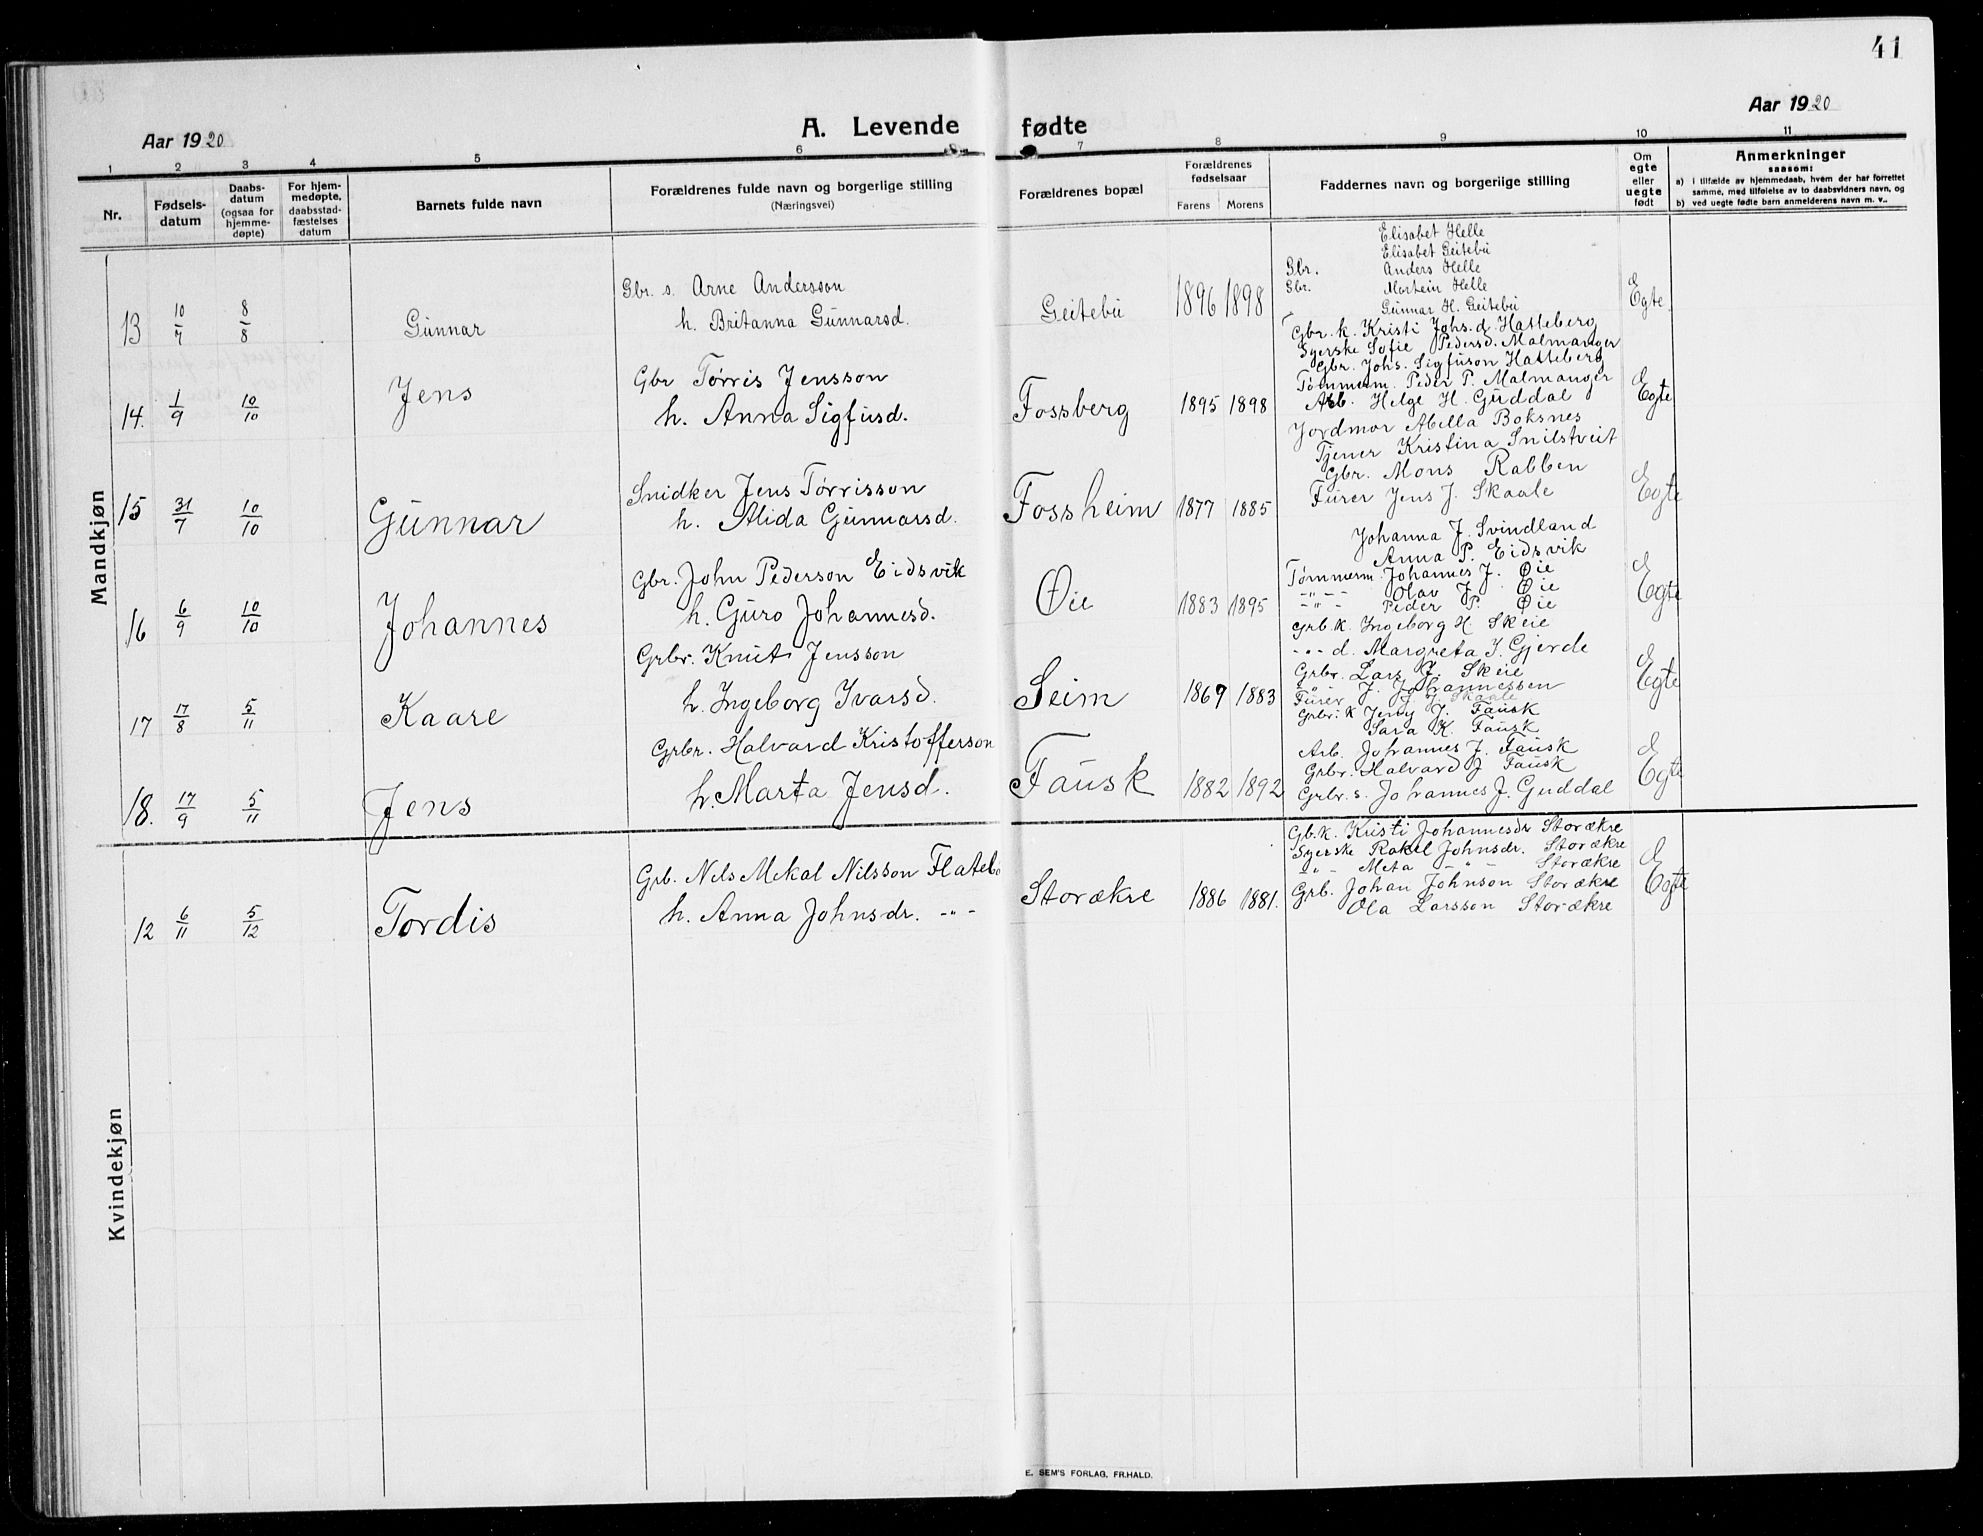 41
Aar 1920
A. Levende fødte
Aar 1920
1 2 3 4 5 6 7 8 9 10 11
Nr.
Fødsels-
datum
Daabs-
datum
(ogsaa for
hjemme-
døpte)
For hjem-
medøpte,
daabsstad-
fæstelses
datum
Barnets fulde navn
Forældrenes fulde navn og borgerlige stilling
(Næringsvei)
Forældrenes bopæl
Forældrenes
fødselsaar
Farens Morens
Faddernes navn og borgerlige stilling
Om
egte
eller
uegte
født
Anmerkninger
saasom:
a) i tilfælde av hjemmedaab, hvem der har forrettet
samme, med tilføielse av to daabsvidners navn, og
b) ved uegte fødte barn anmelderens navn m. v..
Mandkjøn
13 10/7 8/8 Gunnar
Gbr. s. Arne Andersson
h. Britanna Gunnarsd.
Geitebu 1896 1898
Elisabet Helle
Elisabet Geitebu
Gbr. Anders Helle
Gbr. Mortein Helle
Gunnar H. Geitebu
Egte.
14. 1/9 10/10 Jens
Gbr Tørris Jensson
h. Anna Sigfusd.
Fossberg 1895 1898
Gbr. k. Kristi Johs.d. Hatteberg
Syerske Sofie Pedersd. Malmanger
Gbr. Johs. Sigfuson Hatteberg
Tømmerm. Peder P. Malmanger
Arb. Helge H. Guddal
Egte
15 31/7 10/10 Gunnar
Snidker Jens Tørrisson
h. Alida Gunnarsd.
Fossheim 1877 1885
Jordmor Abella Boksnes
Tjener Kristina Snilstveit
Gbr. Mons Rabben
Furer Jens J. Skaale
Egte
16 6/9 10/10 Johannes
Gbr. John Pederson Eidsvik
h. Guro Johannesd.
Øie 1883 1895
Johanna J. Svindland
Anna P. Eidsvik
Tømmerm. Johannes J. Øie
-"- Olav J. Øie
-"- Peder P. Øie
Egte
17 17/8 5/11 Kaare
Grbr. Knut Jensson
h. Ingeborg Ivarsd.
Seim 1869 1883
Grb.k. Ingeborg H Skeie
-"- d. Margreta I. Gjerde
Grbr. Lars J. Skeie
-"- J. Johannessen
Furer J. J. Skaale
Egte
18. 17/9 5/11 Jens
Grbr. Halvard Kristofferson
h. Marta Jensd.
Fausk 1882 1892
Grbr. k Jeny J. Fausk
Sara K. Fausk
Arb. Johannes J. Fausk
Grbr. Halvard J Fausk
Grbr. s. Johannes J. Guddal
Egte
Kvindekjøn
12 6/11 5/12 Tordis
Grb. Nils Mekal Nilsson Flatebø
h. Anna Johnsdr. -"-
Storækre 1886 1881.
Gb.k. Kristi Johannesdr Storækre
Syerske Rakel Johnsdr. Storækre
-"- Meta -"- Storækre
Grb. Johan Johnson Storækre
Ola Larsson Storækre
Egte
E. SEM'S FORLAG, FR.HALD.